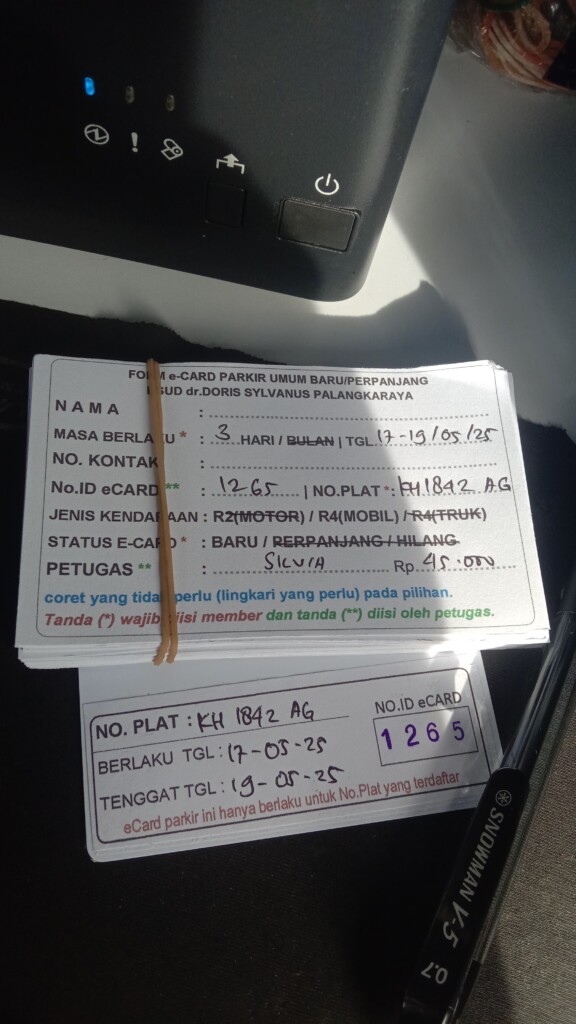 FORM e-CARD PARKIR UMUM BARU/PERPANJANG
RSUD dr.DORIS SYLVANUS PALANGKARAYA
NAMA :
MASA BERLAKU * : 3 HARI / BULAN | TGL. 17-19/05/25
NO. KONTAK :
No.ID eCARD ** : 1265 | NO.PLAT * : KH 1842 AG
JENIS KENDARAAN : R2(MOTOR) / R4(MOBIL) / R4(TRUK)
STATUS E-CARD * : BARU / PERPANJANG / HILANG
PETUGAS ** : SILVIA Rp. 45.000
coret yang tidak perlu (lingkari yang perlu) pada pilihan.
Tanda (*) wajib diisi member dan tanda (**) diisi oleh petugas.
NO. PLAT : KH 1842 AG
BERLAKU TGL : 17-05-25
TENGGAT TGL : 19-05-25
NO.ID eCARD
1265
eCard parkir ini hanya berlaku untuk No.Plat yang terdaftar
SNOWMAN V-5 0.7